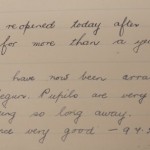 reopened today after
for more than a ye
have now been arra
begun. Pupils are very
so long away.
very good - 94.